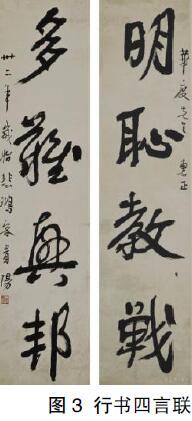 明恥教戦
華 先生 惠正
多難興邦
卅二年歲始悲鴻客貴陽
图3 行书四言联